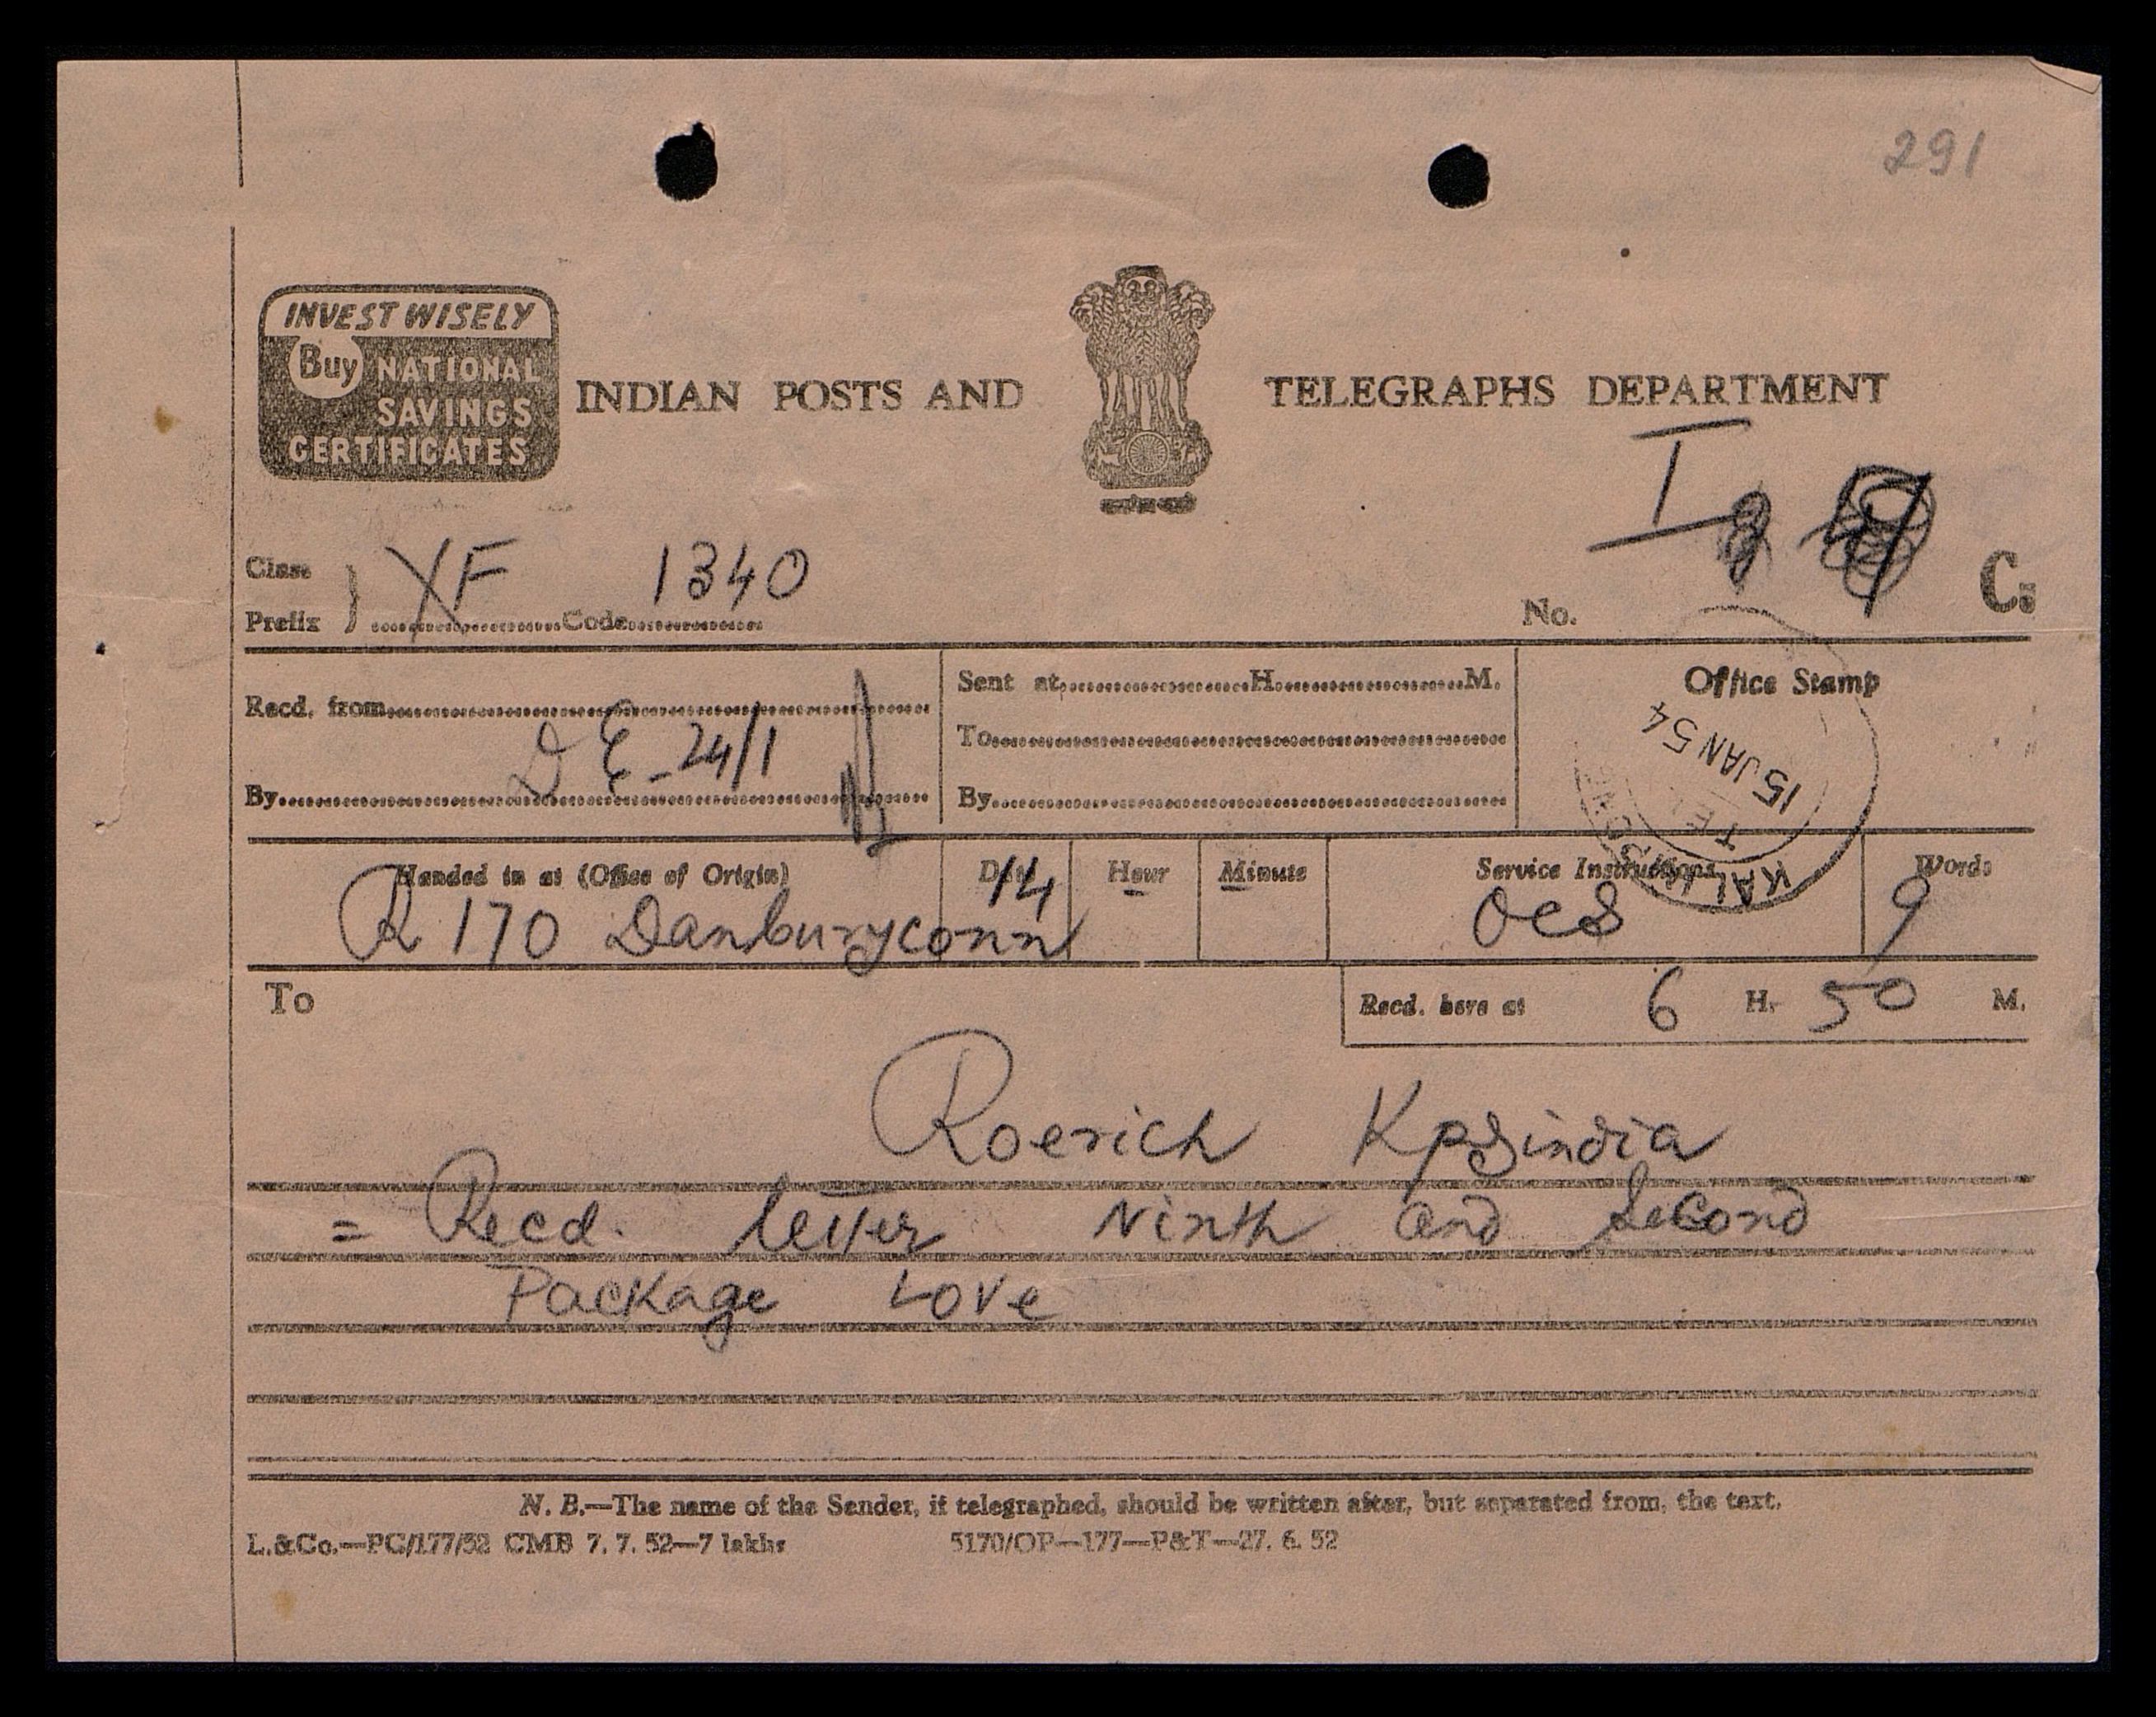 291
INVEST WISELY
Buy NATIONAL
SAVINGS
CERTIFICATES
INDIAN POSTS AND TELEGRAPHS DEPARTMENT
I
Class
Prefix } XF Code 1340
No. C.
Recd. from
D E - 24/1
By
Sent at H. M.
To
By
Office Stamp
15 JAN 54
Handed in at (Office of Origin) Date Hour Minute Service Instructions Words
R 170 Danburyconn 14 OCS 9
To
Recd. here at 6 H. 50 M.
Roerich Kpgindia
= Recd. letter Ninth and Second
Package Love
N. B.—The name of the Sender, if telegraphed, should be written after, but separated from, the text.
L.&Co.—PC/177/52 CMB 7. 7. 52—7 lakhs 5170/OP—177—P&T—27. 6. 52